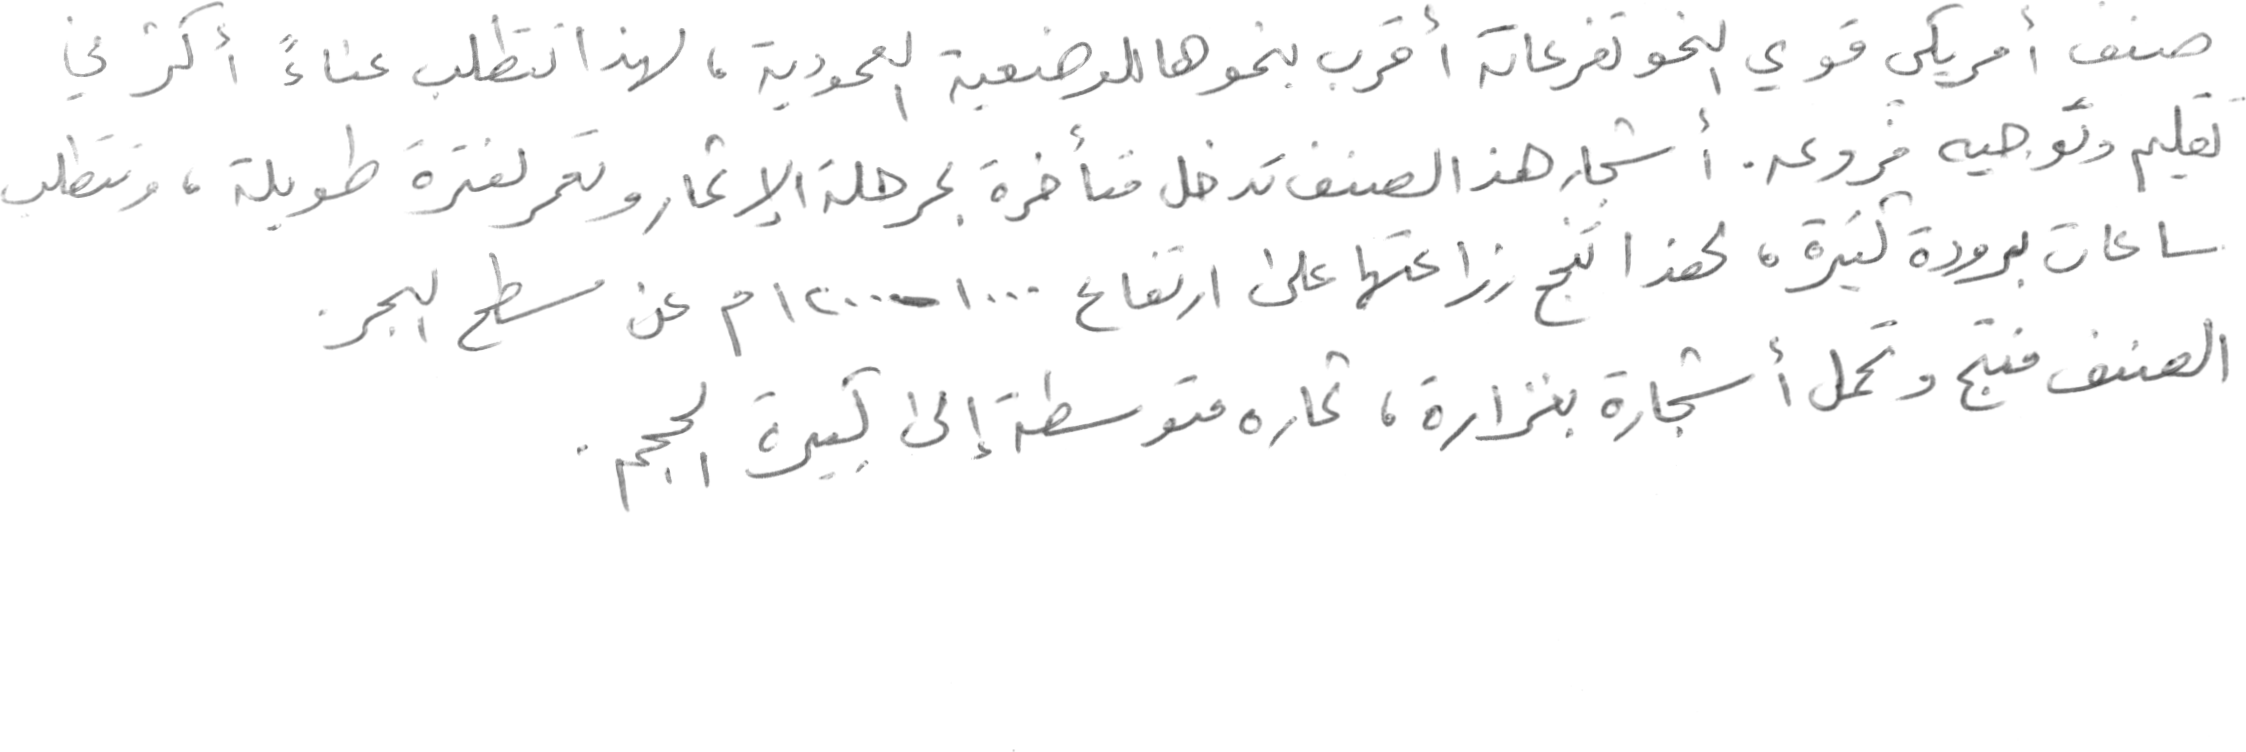 صنف أمريكي قوي النمو تفرعاته أقرب بنموها للوضعية العمودية، لهذا تتطلب عناءً أكثر في
تقليم وتوجيه فروعه. أشجار هذا الصنف تدخل متأخرة بمرحلة الإثمار وتعمر لفترة طويلة، وتتطلب
ساعات برودة كثيرة، لهذا تنجح زراعتها على ارتفاع ١٠٠٠-١٢٠٠م عن سطح البحر.
الصنف منتج وتحمل أشجارة بغزارة، ثماره متوسطة إلى كبيرة الحجم.